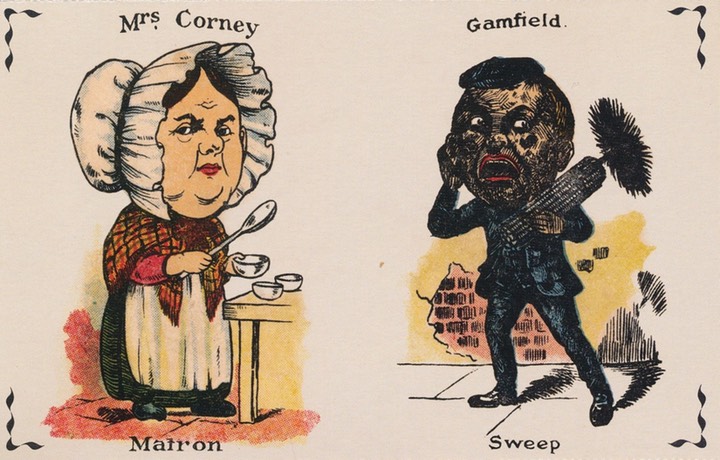 Mrs. Corney
Gamfield.
Matron
Sweep